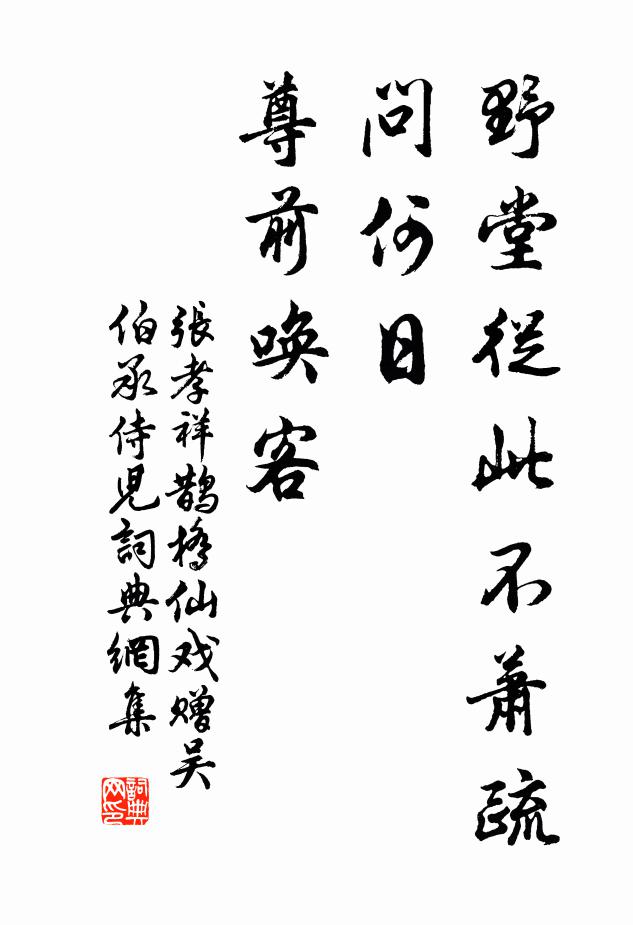 野堂從此不蕭疏
問何日
尊前喚客
張孝祥鵲橋仙戏贈吴
伯承侍兒詞典網集
詞典网印